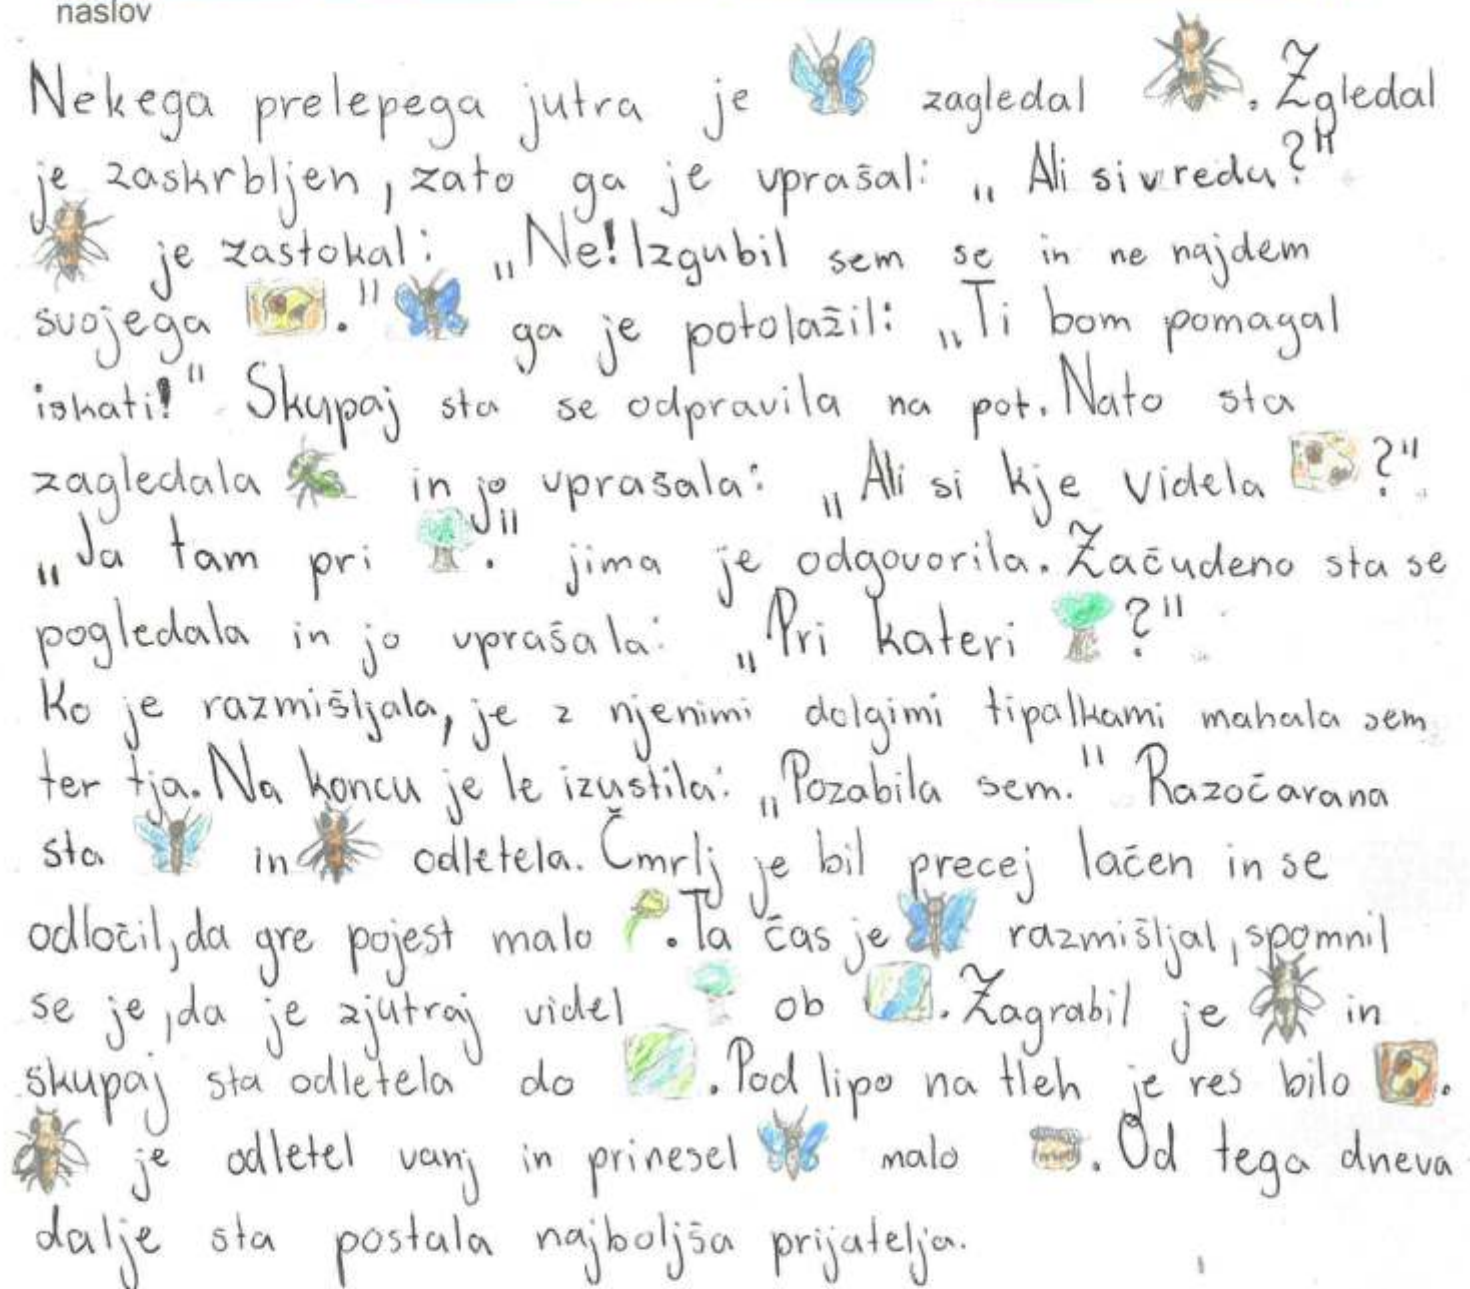 naslov
Nekega prelepega jutra je zagledal . Zgledal
je zaskrbljen, zato ga je vprašal: „Ali si v redu?"
je zastokal: „Ne! Izgubil sem se in ne najdem
svojega ." ga je potolažil: „Ti bom pomagal
iskati!" Skupaj sta se odpravila na pot. Nato sta
zagledala in jo vprašala: „Ali si kje videla ?"
„Ja tam pri ." jima je odgovorila. Začudeno sta se
pogledala in jo vprašala: „Pri kateri ?"
Ko je razmišljala, je z njenimi dolgimi tipalkami mahala sem
ter tja. Na koncu je le izustila: „Pozabila sem." Razočarana
sta in odletela. Čmrlj je bil precej lačen in se
odločil, da gre pojest malo . Ta čas je razmišljal, spomnil
se je, da je zjutraj videl ob . Zagrabil je in
skupaj sta odletela do . Pod lipo na tleh je res bilo .
je odletel vanj in prinesel malo . Od tega dneva
dalje sta postala najboljša prijatelja.